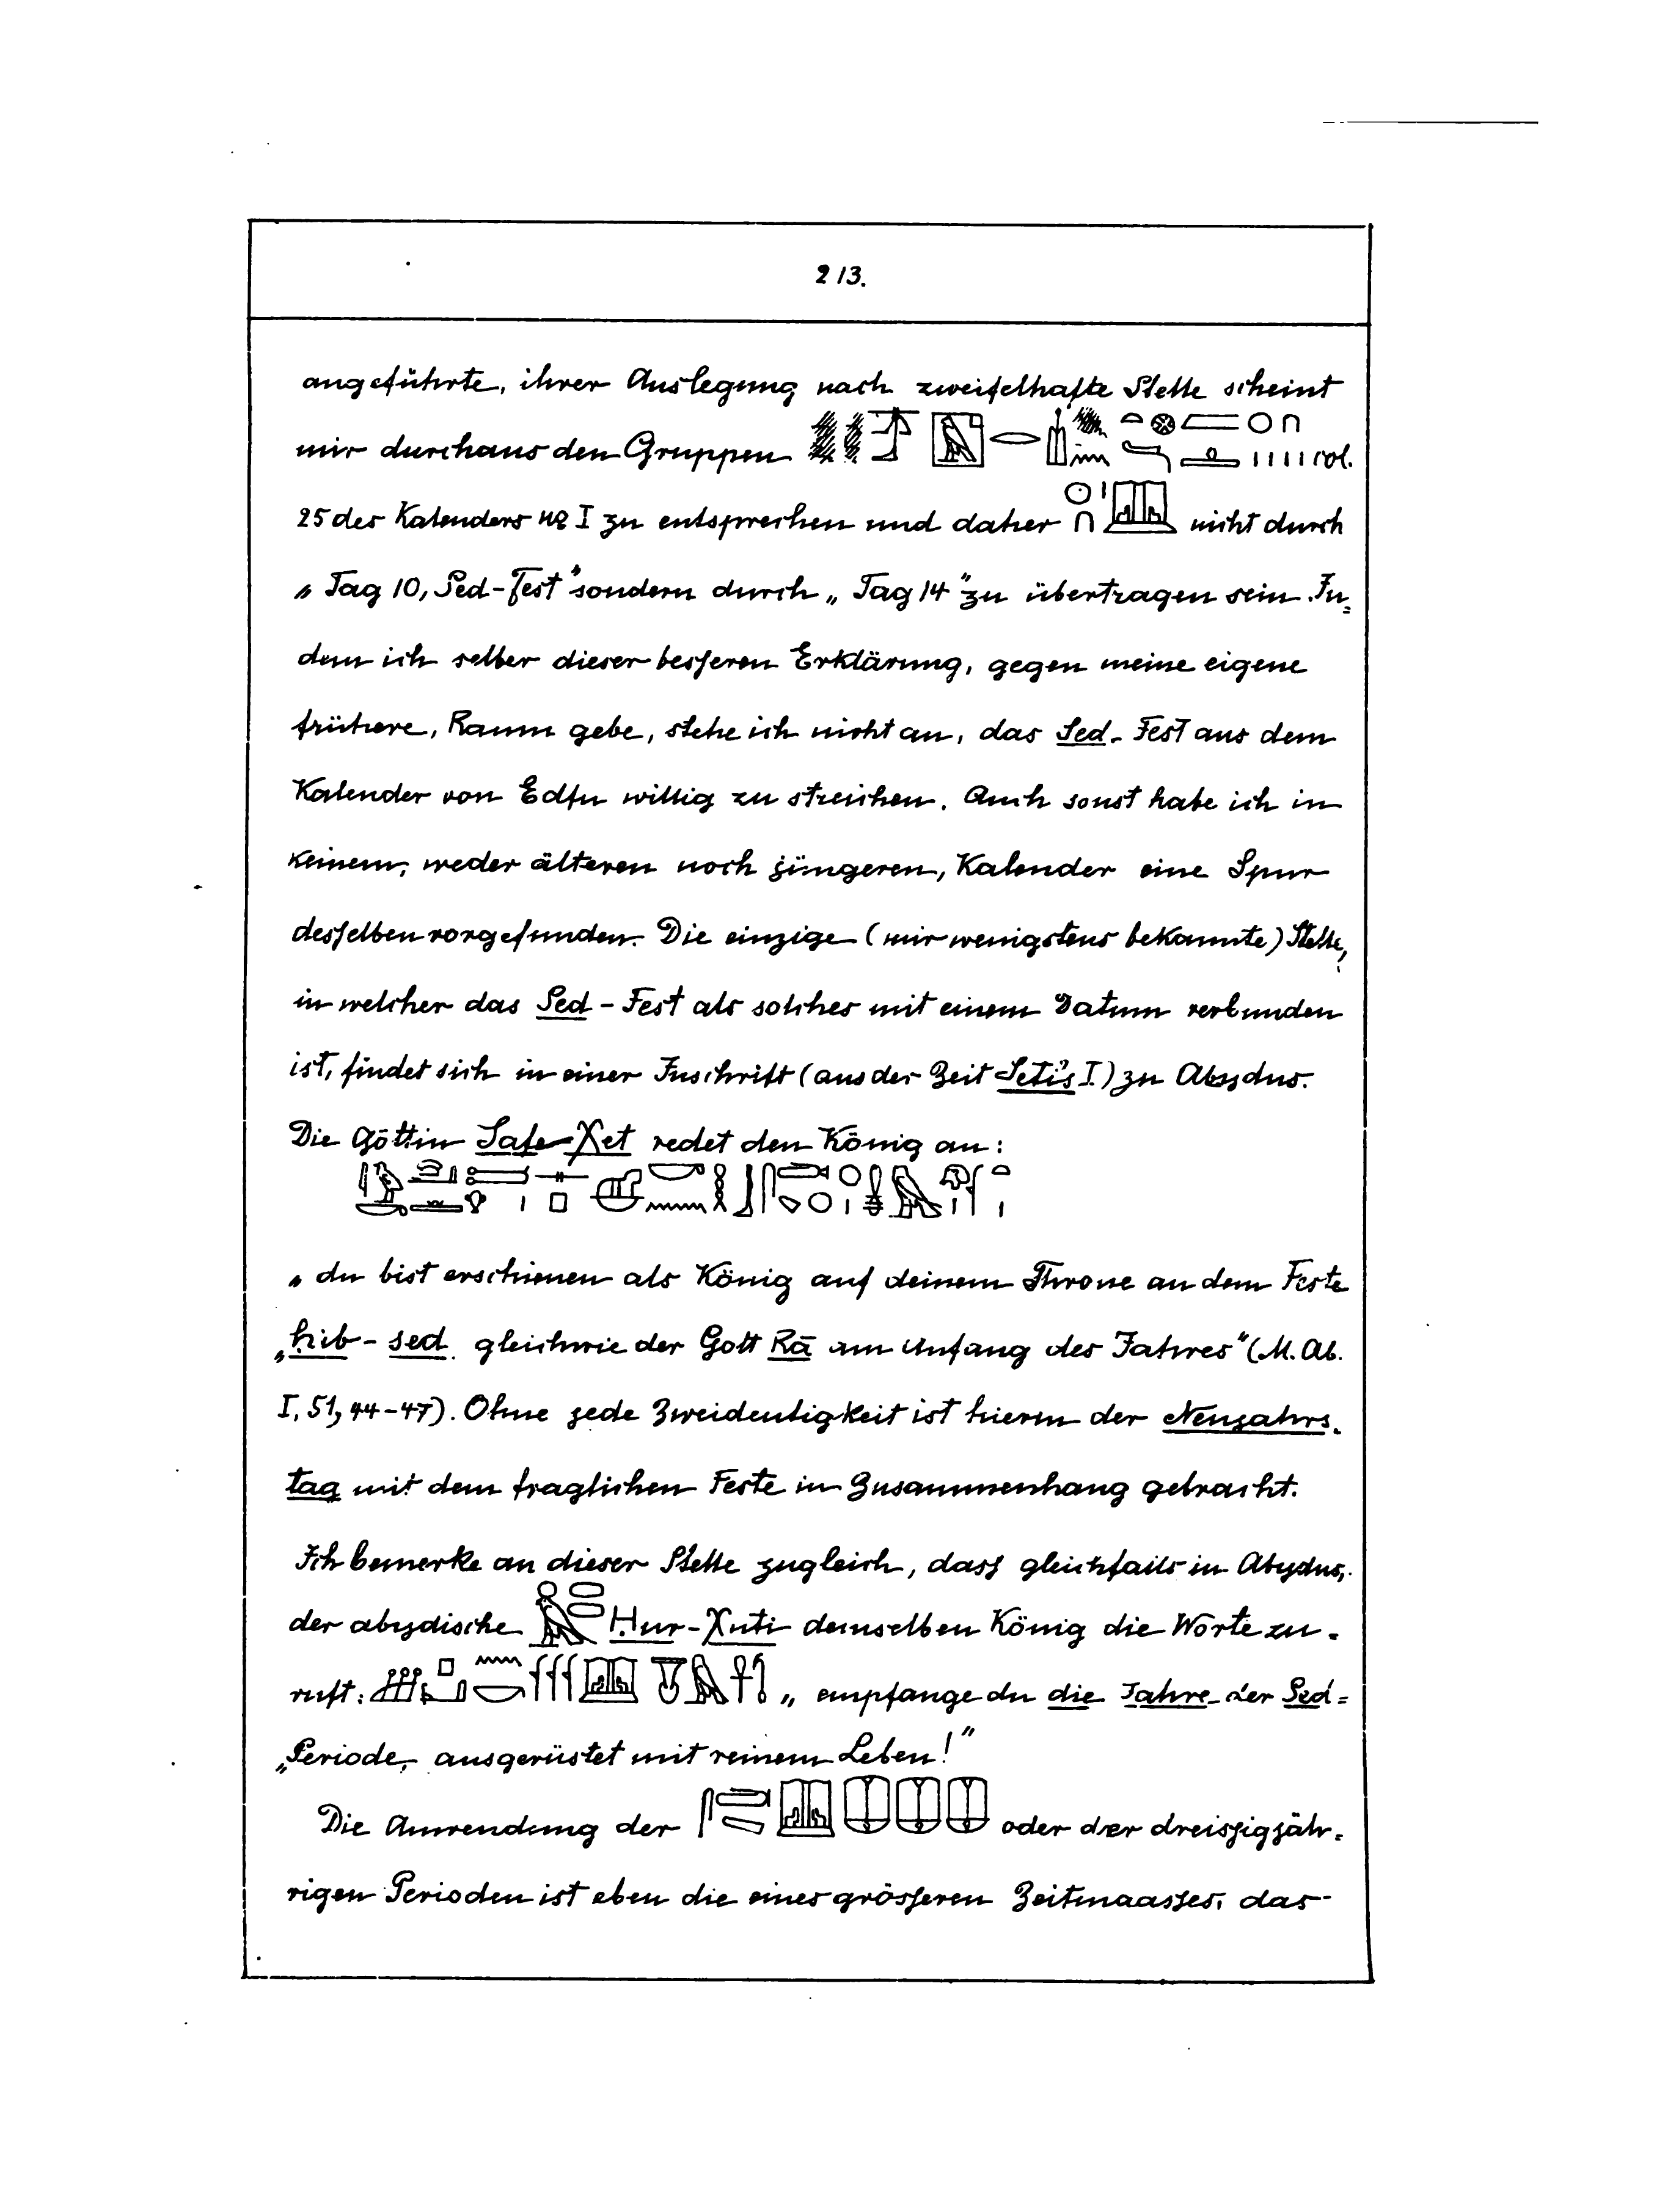 213.
angeführte, ihrer Auslegung nach zweifelhafte Stelle scheint
mir durchaus den Gruppen col.
25 des Kalenders № I zu entsprechen und daher nicht durch
„Tag 10, Sed-Fest" sondern durch „Tag 14" zu übertragen sein. In=
dem ich selber dieser besseren Erklärung, gegen meine eigene
frühere, Raum gebe, stehe ich nicht an, das Sed-Fest aus dem
Kalender von Edfu willig zu streichen. Auch sonst habe ich in
keinem, weder älteren noch jüngeren, Kalender eine Spur
desselben vorgefunden. Die einzige (mir wenigstens bekannte) Stelle,
in welcher das Sed-Fest als solches mit einem Datum verbunden
ist, findet sich in einer Inschrift (aus der Zeit Seti's I) zu Abydus.
Die Göttin Safe-Xet redet den König an:
„du bist erschienen als König auf deinem Throne an dem Feste
„ḥib-sed gleichwie der Gott Rā am Anfang des Jahres" (M. Ab.
I, 51, 44-47). Ohne jede Zweideutigkeit ist hierin der Neujahrs-
tag mit dem fraglichen Feste in Zusammenhang gebracht.
Ich bemerke an dieser Stelle zugleich, dass gleichfalls in Abydus,
der abydische Ḥur-Xuti demselben König die Worte zu-
ruft: „empfange du die Jahre der Sed=
„Periode, ausgerüstet mit reinem Leben!"
Die Anwendung der oder der dreissigjäh-
rigen Perioden ist eben die eines grösseren Zeitmaasses, das